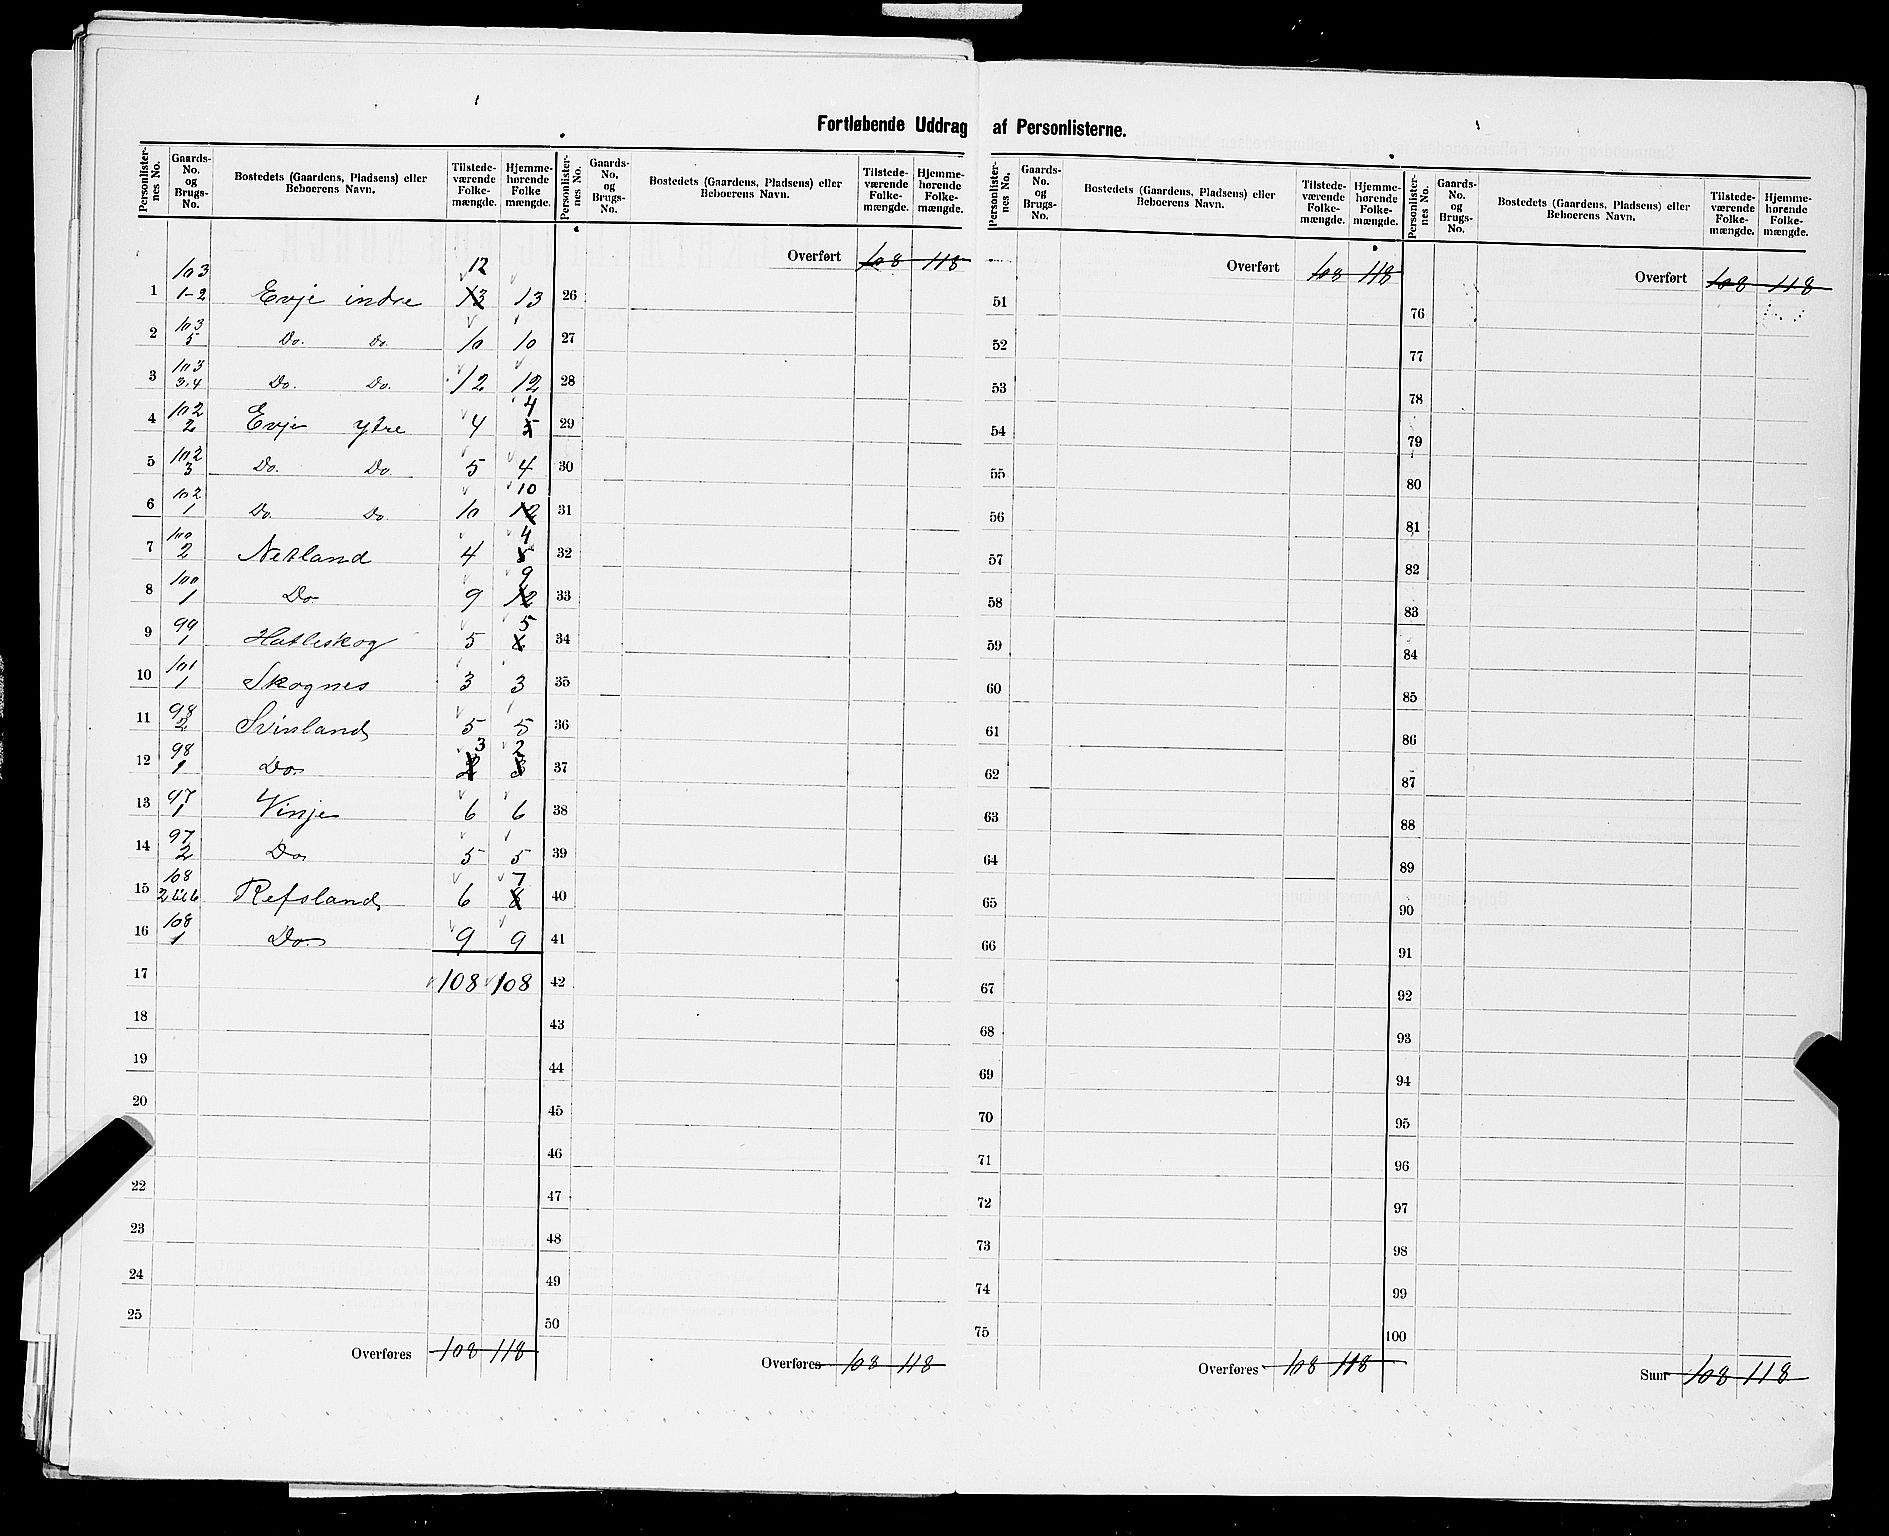 Fortløbende Uddrag af Personlisterne.
Personlister-nes No. | Gaards-No. og Brugs-No. | Bostedets (Gaardens, Pladsens) eller Beboerens Navn. | Tilstede-værende Folke-mængde. | Hjemme-hørende Folke mængde.
1 | 103 1-2 | Evje indre | 12 13 | 13
2 | 103 5 | Do. Do. | 10 | 10
3 | 103 3.4 | Do. Do. | 12 | 12
4 | 102 2 | Evje ytre | 4 | 4 5
5 | 102 3 | Do. Do. | 5 | 4
6 | 102 1 | Do. Do. | 10 | 10 12
7 | 100 2 | Netland | 4 | 4 5
8 | 100 1 | Do. | 9 | 9 12
9 | 99 1 | Hatleskog | 5 | 5
10 | 101 1 | Skognes | 3 | 3
11 | 98 2 | Svinland | 5 | 5
12 | 98 1 | Do. | 3 2 | 2 3
13 | 97 1 | Vinje | 6 | 6
14 | 97 2 | Do | 5 | 5
15 | 108 | Refsland | 6 | 7 8
16 | 108 1 | Do. | 9 | 9
17 | 108 | 108
18
19
20
22
23
24
25
Overføres 108 118
Personlister-nes No. | Gaards-No. og Brugs-No. | Bostedets (Gaardens, Pladsens) eller Beboerens Navn. | Tilstede-værende Folke-mængde. | Hjemme-hørende Folke-mængde.
Overført 108 118
26
27
28
29
30
31
32
33
34
35
36
37
38
39
40
41
42
43
44
45
46
47
48
49
50
Overføres 108 118
Personlister-nes No. | Gaards-No. og Brugs-No. | Bostedets (Gaardens, Pladsens) eller Beboerens Navn. | Tilstede-værende Folke-mængde. | Hjemme-hørende Folke-mængde.
Overført 108 118
51
52
53
54
55
56
57
58
59
60
61
62
63
64
65
66
67
68
69
70
71
72
73
74
75
Overføres 108 118
Personlister-nes No. | Gaards-No. og Brugs-No. | Bostedets (Gaardens, Pladsens) eller Beboerens Navn. | Tilstede-værende Folke-mængde. | Hjemme-hørende Folke-mængde.
Overført 108 118
76
77
78
79
80
81
82
83
84
85
86
87
88
89
90
91
92
93
94
95
96
97
98
99
100
Sum 108 118